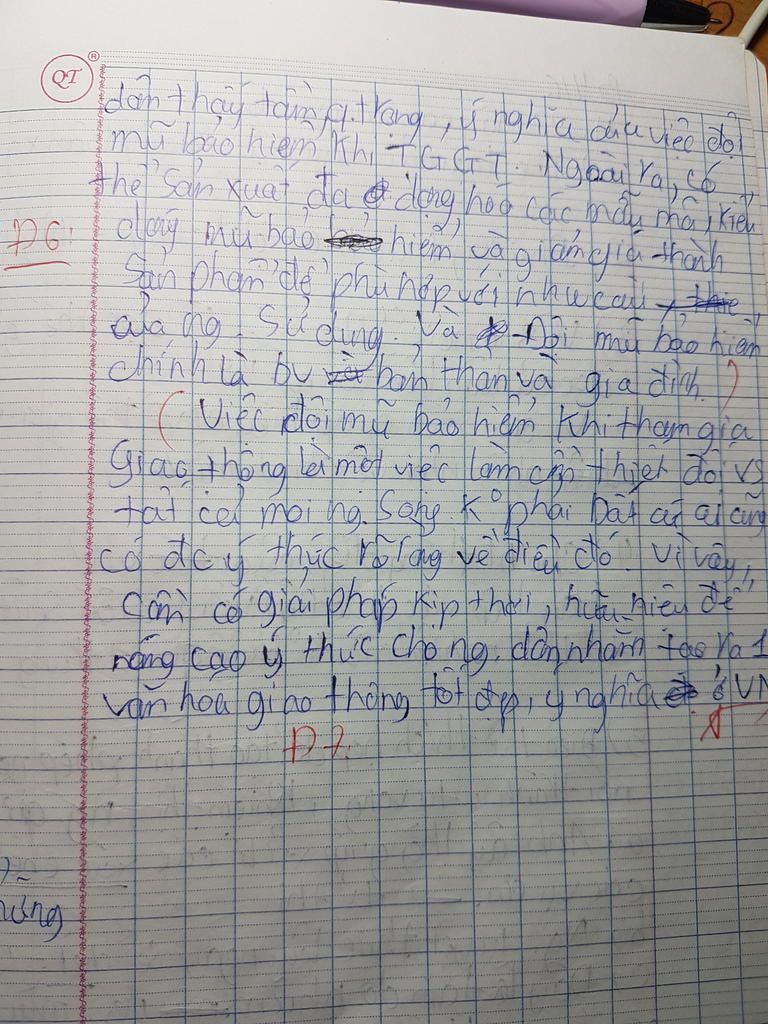 QT ®
dân thấy tầm q.trọng, ý nghĩa của việc đội
mũ bảo hiểm khi TGGT. Ngoài ra, có
thể sản xuất đa dạng hoá các mẫu mã, kiểu
Đ6: dáng mũ bảo hiểm và giảm giá thành
sản phẩm để phù hợp với nhu cầu
của ng. sử dụng. Và Đội mũ bảo hiểm
chính là bv bản thân và gia đình.
Việc đội mũ bảo hiểm khi tham gia
giao thông là một việc làm cần thiết đối vs
tất cả mọi ng. Song k° phải bất cứ ai cũng
có đc ý thức rõ ràng về điều đó. Vì vậy,
cần có giải pháp kịp thời, hữu hiệu để
nâng cao ý thức cho ng. dân nhằm tạo ra 1
văn hoá giao thông tốt đẹp, ý nghĩa ở VN
Đ7.